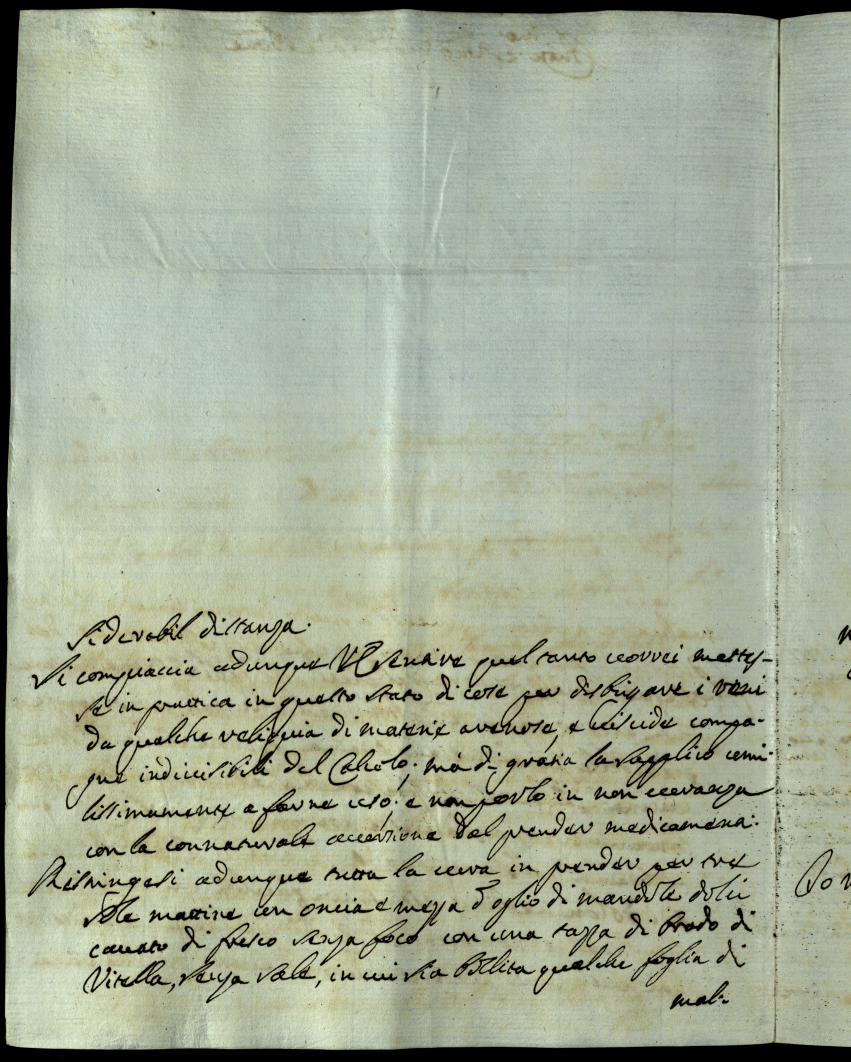 siderabil distanza.
Si compiaccia adunque V.E. sentire quel tanto vorrei mettes-
se in prattica in questo stato di cose per disbrigare i reni
da qualche reliquia di materie arenose, e viscide compa-
gne indivisibili del Calcolo; mà di gratia la supplico umi-
lissimamente a farne uso; e non porlo in non curanza
con la connaturale aversione del prender medicamenti.
Restringesi adunque tutta la cura in prender per tre
sole mattine un oncia e mezza d'oglio di mandole dolci
cavato di fresco senza foco con una tazza di brodo di
Vitella, senza sale, in cui sia bollita qualche foglia di
mal-